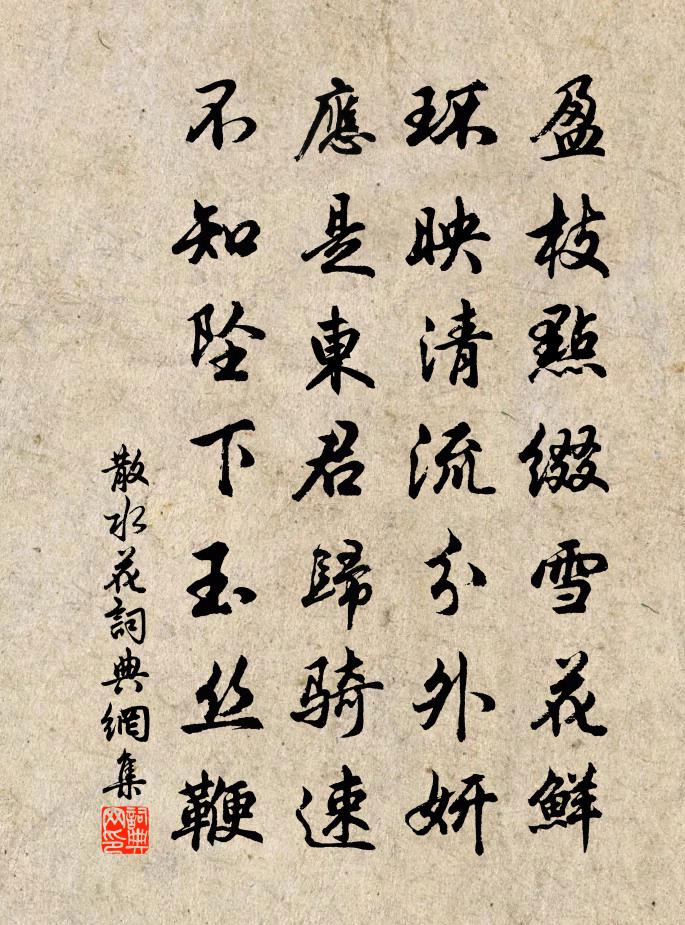 盈枝點綴雪花鮮
环映清流分外妍
應是東君歸騎速
不知坠下玉丝鞭
散水花詞典網集
詞典网印